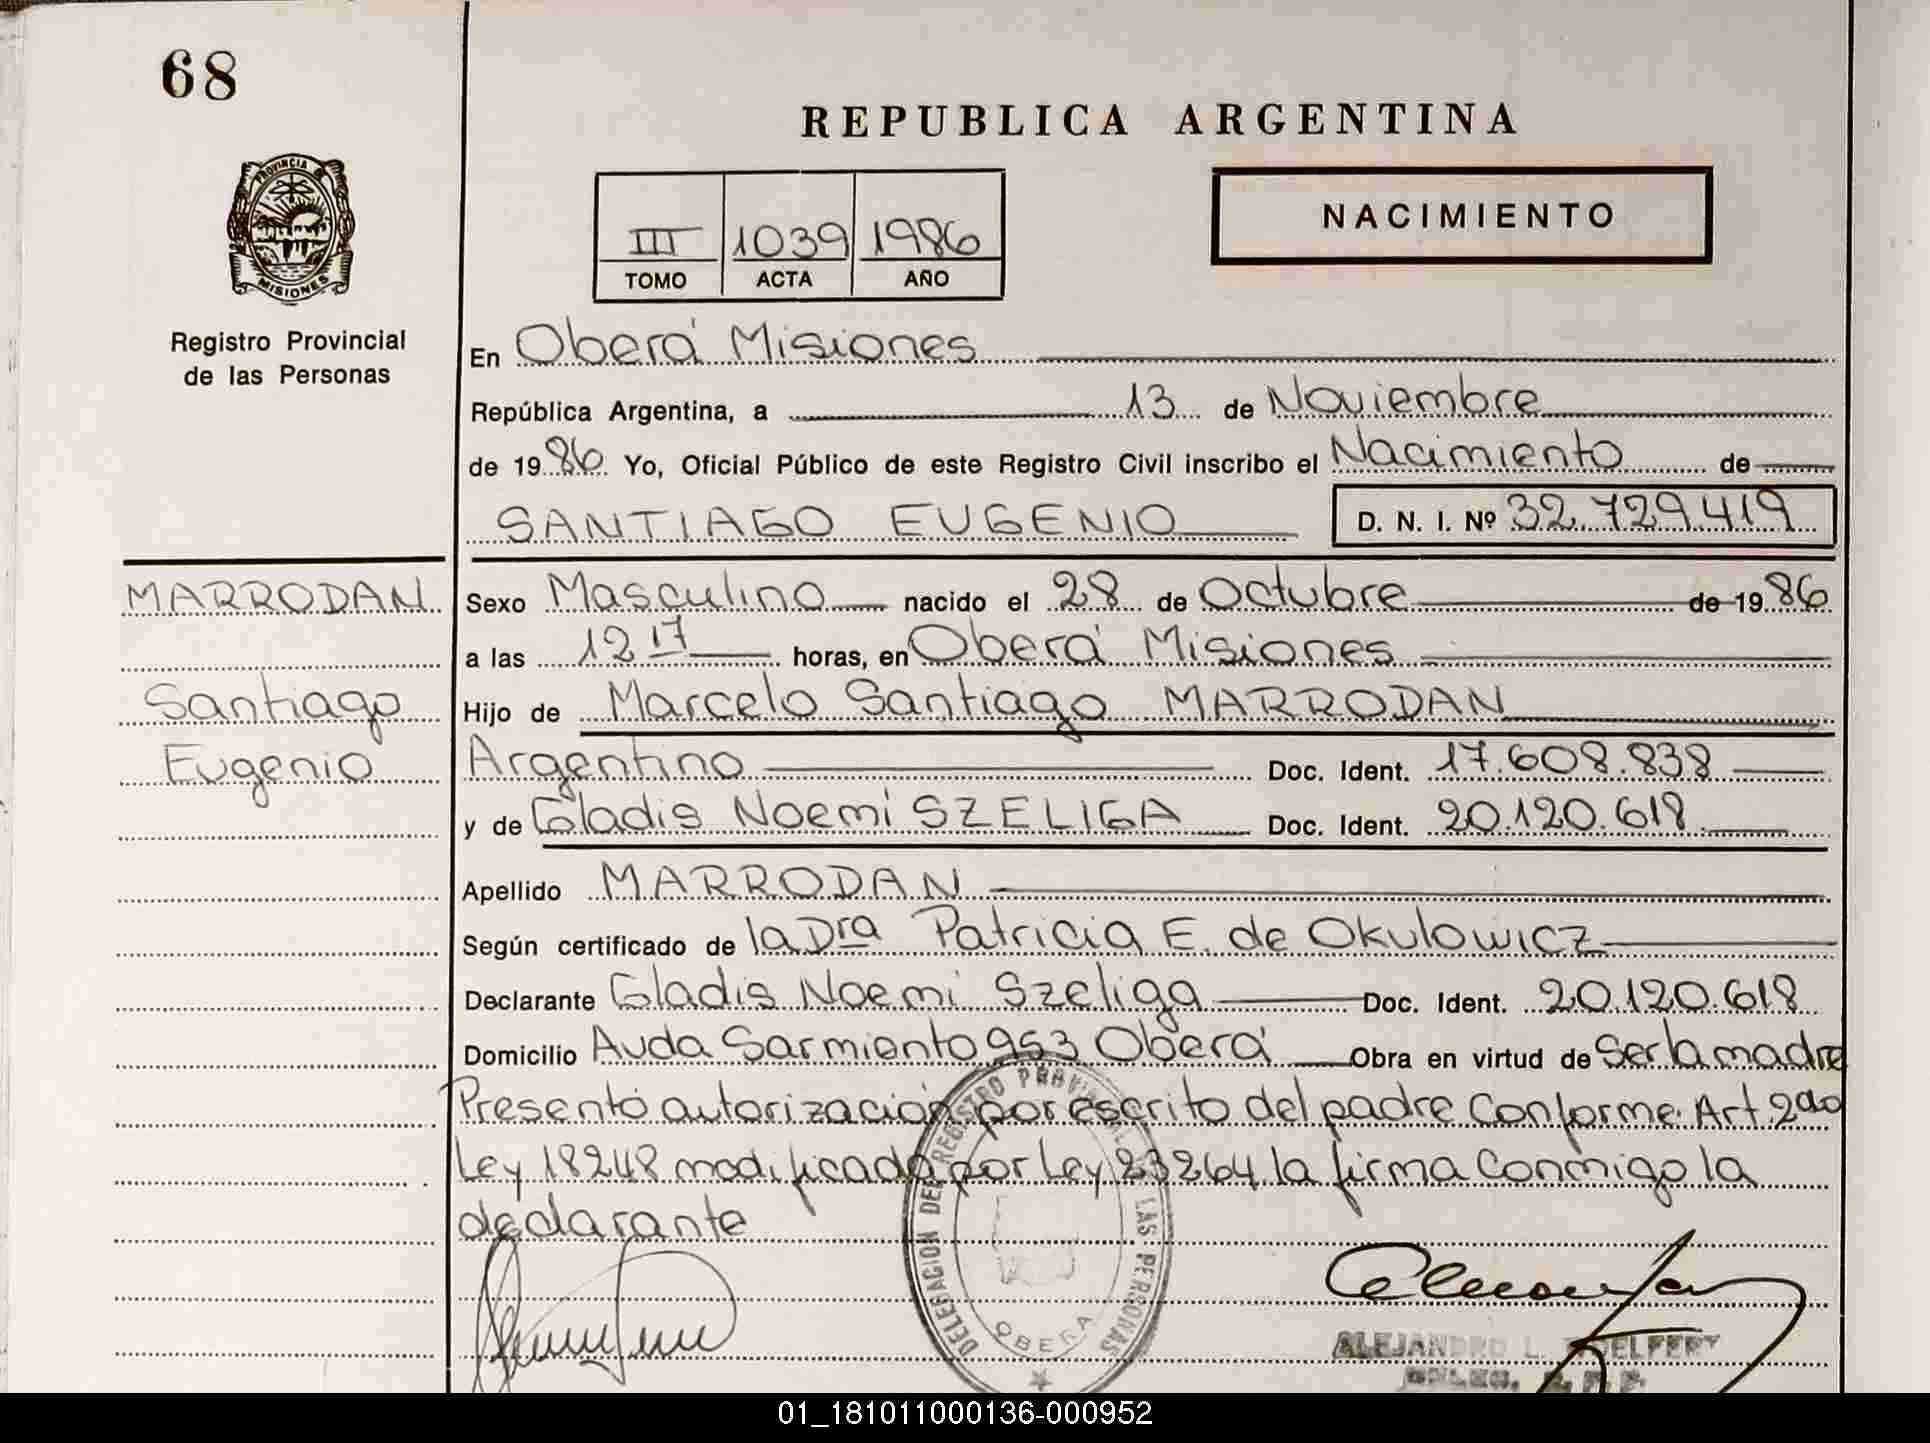 68
REPUBLICA ARGENTINA
PROVINCIA DE
MISIONES
III 1039 1986
TOMO ACTA AÑO
NACIMIENTO
Registro Provincial
de las Personas
En Oberá Misiones
República Argentina, a 13 de Noviembre
de 1986 Yo, Oficial Público de este Registro Civil inscribo el Nacimiento de
SANTIAGO EUGENIO D. N. I. Nº 32.729.419
MARRODAN
Santiago
Eugenio
Sexo Masculino nacido el 28 de Octubre de 1986
a las 12 17 horas, en Oberá Misiones
Hijo de Marcelo Santiago MARRODAN
Argentino Doc. Ident. 17.608.838
y de Gladis Noemí SZELIGA Doc. Ident. 20.120.618
Apellido MARRODAN
Según certificado de la Dra Patricia E. de Okulowicz
Declarante Gladis Noemi Szeliga Doc. Ident. 20.120.618
Domicilio Avda Sarmiento 953 Oberá Obra en virtud de Ser la madre
Presentó autorización por escrito del padre Conforme Art. 2do
Ley 18248 modificada por Ley 23264 la firma Conmigo la
declarante
DELEGACION DEL REGISTRO PROVINCIAL DE LAS PERSONAS
OBERA
ALEJANDRO L.
01_181011000136-000952